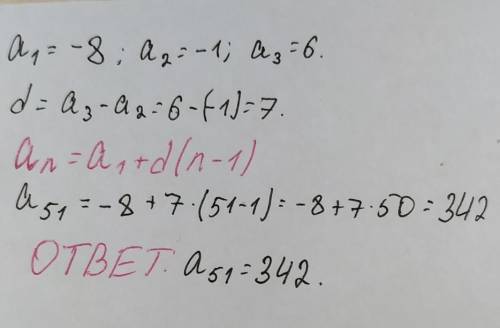 a₁ = -8; a₂ = -1; a₃ = 6.
d = a₃ - a₂ = 6 - (-1) = 7.
aₙ = a₁ + d(n-1)
a₅₁ = -8 + 7·(51-1) = -8 + 7·50 = 342
ОТВЕТ. a₅₁ = 342.